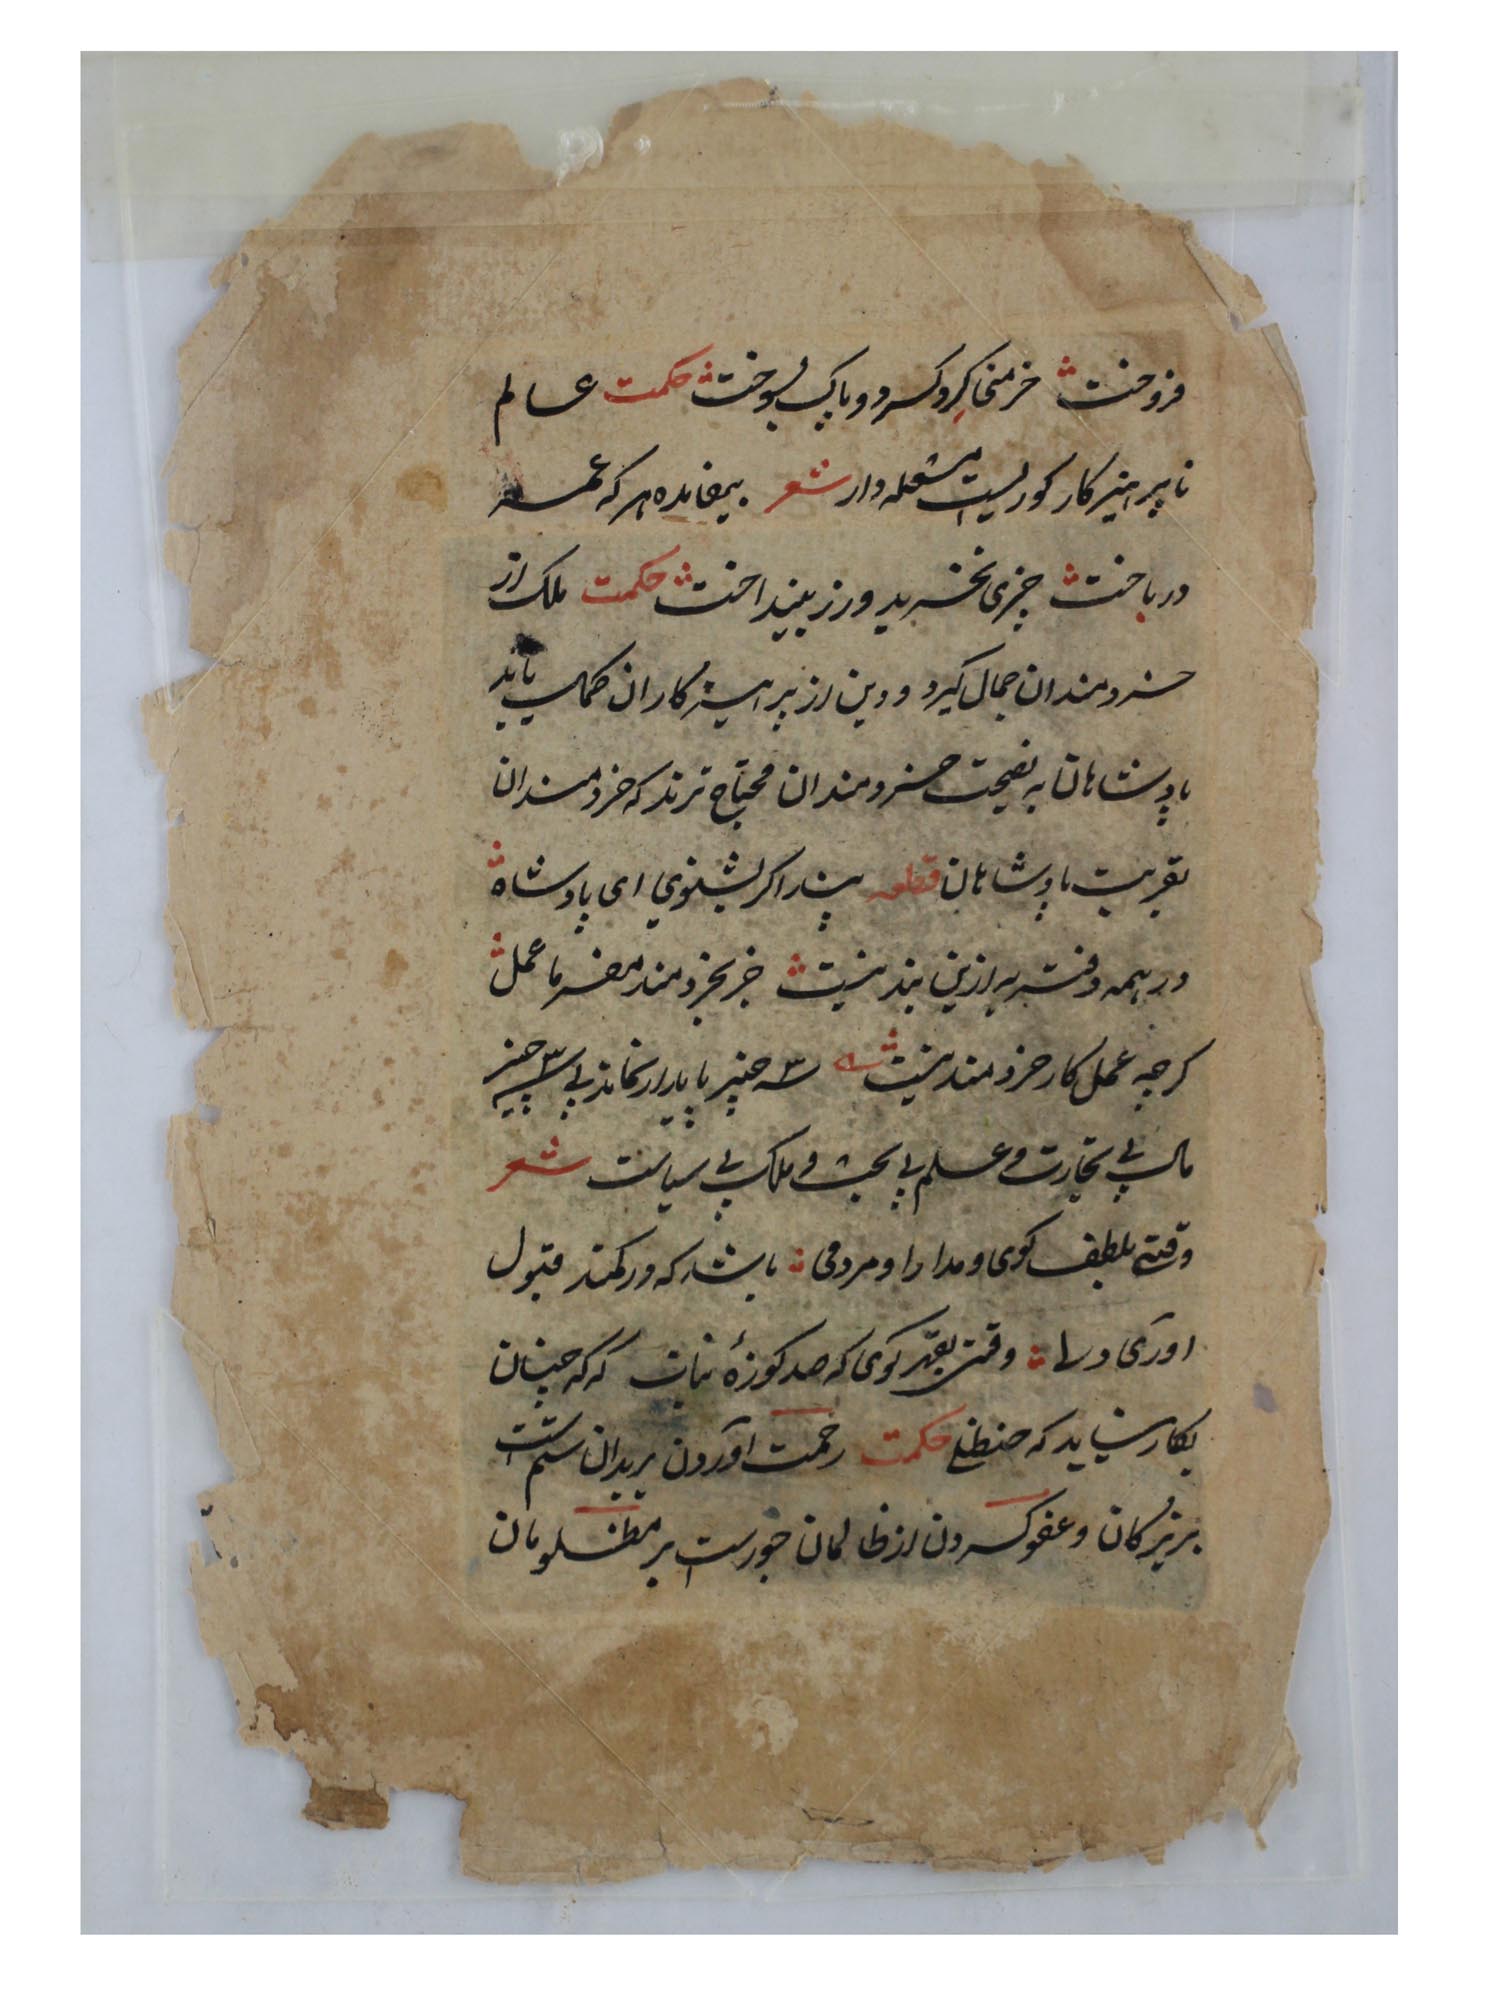 فروخت خرمنها کرد کرد و پاک بسوخت حکمت عالم
ناپرهیزکار کوریست مشعله دار شعر بیفایده هر که عمر
در باخت چیزی نخرید و زر بینداخت حکمت ملک از
خردمندان جمال گیرد و دین از پرهیزکاران کمال یابد
پادشاهان به نصیحت خردمندان محتاج ترند که خردمندان
بقربت پادشاهان قطعه پند اگر بشنوی ای پادشاه
در همه دفتر به ازین پند نیست جز بخردمند مفرما عمل
کرچه عمل کار خردمند نیست سه چیز پایدار نماند بی سه چیز
مال بی تجارت و علم بی بحث و ملک بی سیاست شعر
وقتی بلطف کوی و مدارا و مردمی باشد که در کمند قبول
اوری دلی وقتی بقهر کوی که صد کوزهٔ نبات که که چنان
بکار نیاید که حنظلی حکمت رحمت آوردن بر بدان ستم است
بر نیکان و عفو کردن از ظالمان جورست بر مظلومان